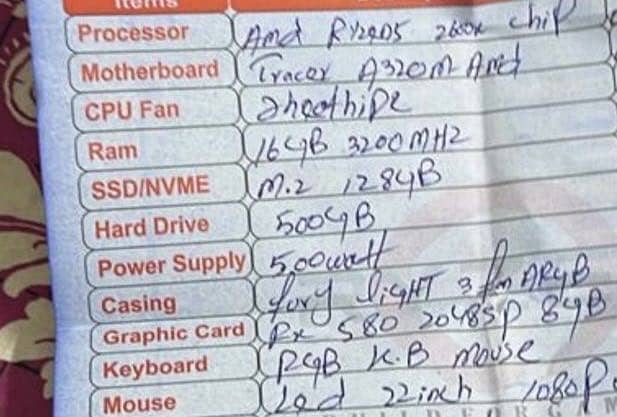 Items
Processor AMD RYZEN5 2600x chip
Motherboard Tracer A320M AMD
CPU Fan 2heathipe
Ram 16GB 3200MHZ
SSD/NVME M.2 128GB
Hard Drive 500GB
Power Supply 500watt
Casing fury LiGHT 3 fan ARGB
Graphic Card Rx 580 2048SP 8GB
Keyboard RGB K.B mouse
Mouse Led 22inch 1080P